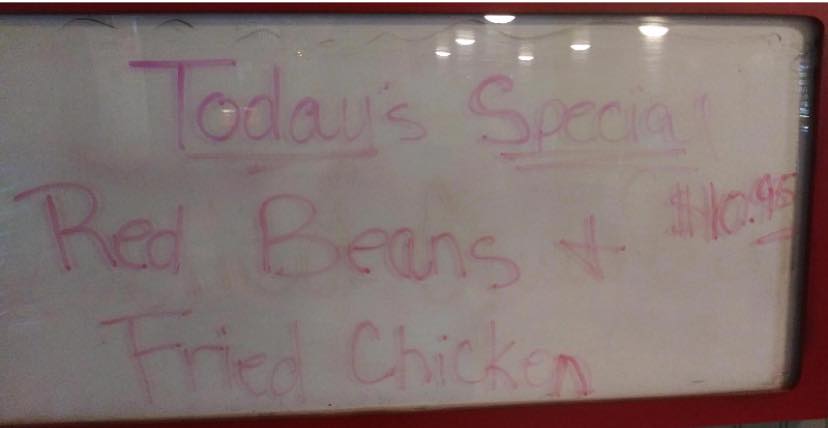 Today's Special
Red Beans + $10.95
Fried Chicken